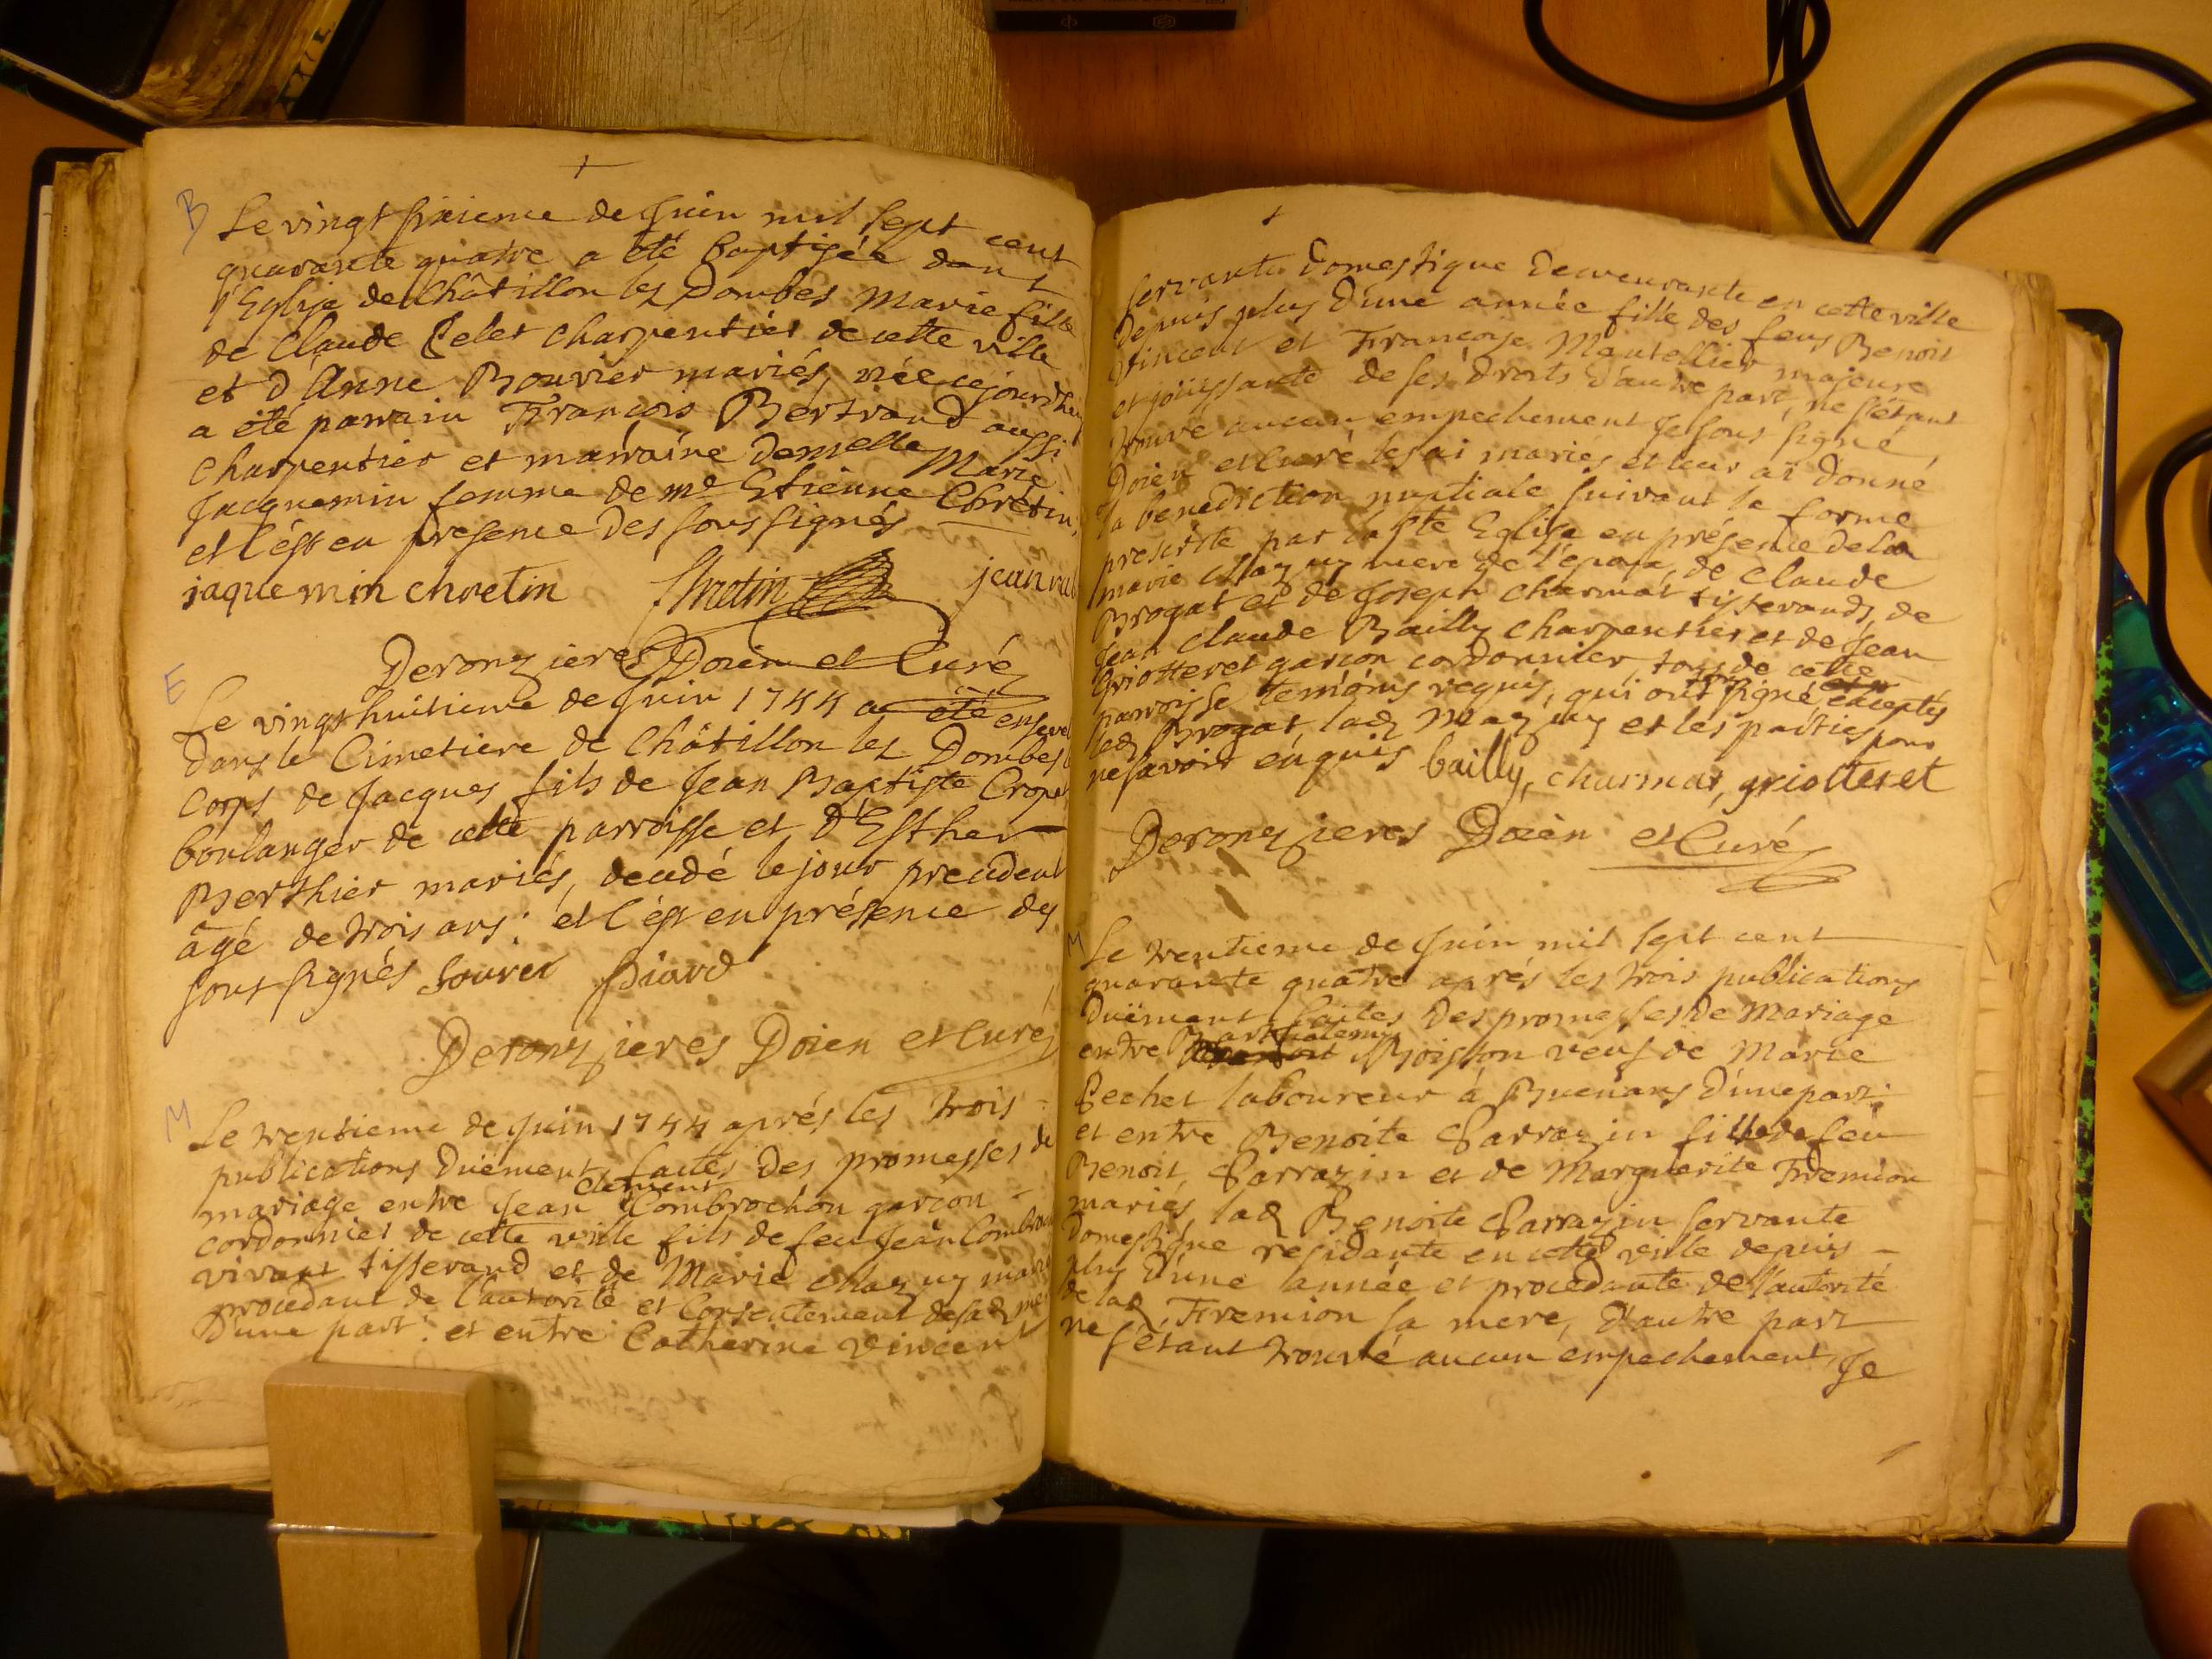 B
Le vingt sixieme de Juin mil sept cent
quarante quatre a été baptisée dans
l'Eglise de Châtillon les Dombes Marie fille
de Claude Pelet charpentier de cette ville
et d'Anne Bouvier mariés, née cejourdhuy
a été parrain François Bertrand aussi
charpentier et marraine demelle Marie
Jacquemin femme de me Etienne Chrétin,
et c'est en presence des soussignés
jaquemin chretin Chretin jean
Deronzieres Doien et Curé
E
Le vingt huitieme de Juin 1744 a été enseveli
dans le Cimetiere de Châtillon les Dombes
corps de Jacques fils de Jean Baptiste
boulanger de cette parroisse et d'Esther
Berthier mariés, decedé le jour precedent
âgé de trois ans. et c'est en présence des
soussignés Souver Piard
Deronzieres Doien et Curé
M
Le trentieme de Juin 1744 aprés les trois
publications duëment faites des promesses de
mariage entre Jean clement Combrochon garcon
cordonnier de cette ville fils de feu Jean
vivant tisserand et de Marie Mazuy mariés
procedant de l'autorité et consentement de sad mere
d'une part. et entre Catherine Vincent
servante domestique demeurante en cette ville
depuis plus d'une année fille des feus Benoit
Vincent et Françoise Mantellier majeure
et joüissante de ses droits d'autre part, ne s'étant
trouvé aucun empechement Je sous signé
Doien et Curé les ai mariés et leur ai donné
la benediction nuptiale suivant la forme
prescrite par la ste Eglise en présence de la
marie Mazuy mere de l'époux, de Claude
Brogat et de Joseph Charmat tisserands, de
Jean Claude Bailly charpentier et de Jean
Griotteret garcon cordonnier, tous de cette
parroisse temoins requis, qui ont signé exceptés
led Brogat, lad Mazuy et les parties pour
ne savoir enquis bailly, charmat, griotteret
Deronzieres Doien et Curé
M
Le trentieme de Juin mil sept cent
quarante quatre aprés les trois publications
duëment faites des promesses de mariage
entre Barthelemy Boisson veuf de Marie
Pechet laboureur à Buenans d'une part.
et entre Benoite Sarrazin fille de feu
Benoit Sarrazin et de Marguerite Fremion
mariés, lad Benoite Sarrazin servante
domestique residante en cette ville depuis
plus d'une année et procedante de l'autorité
de lad Fremion sa mere, d'autre part
ne s'étant trouvé aucun empechement, Je